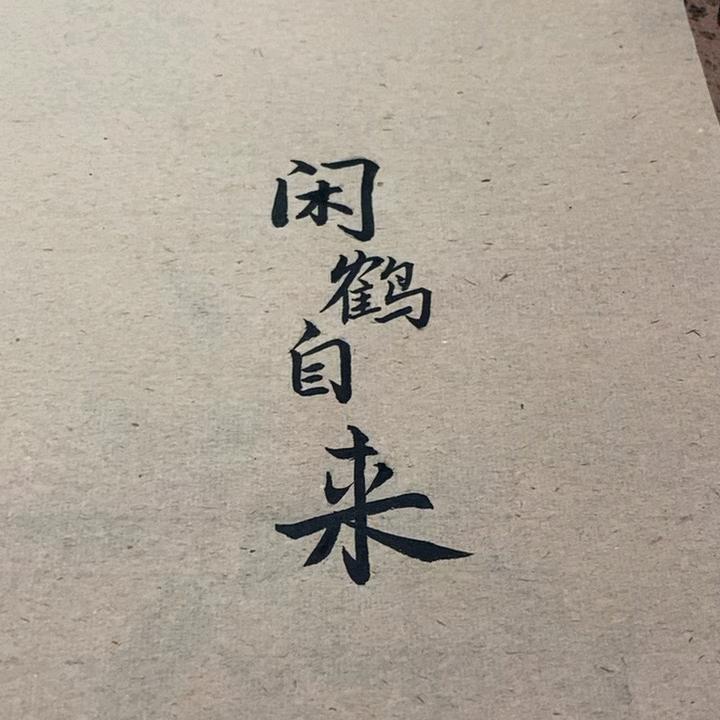 闲鹤自来